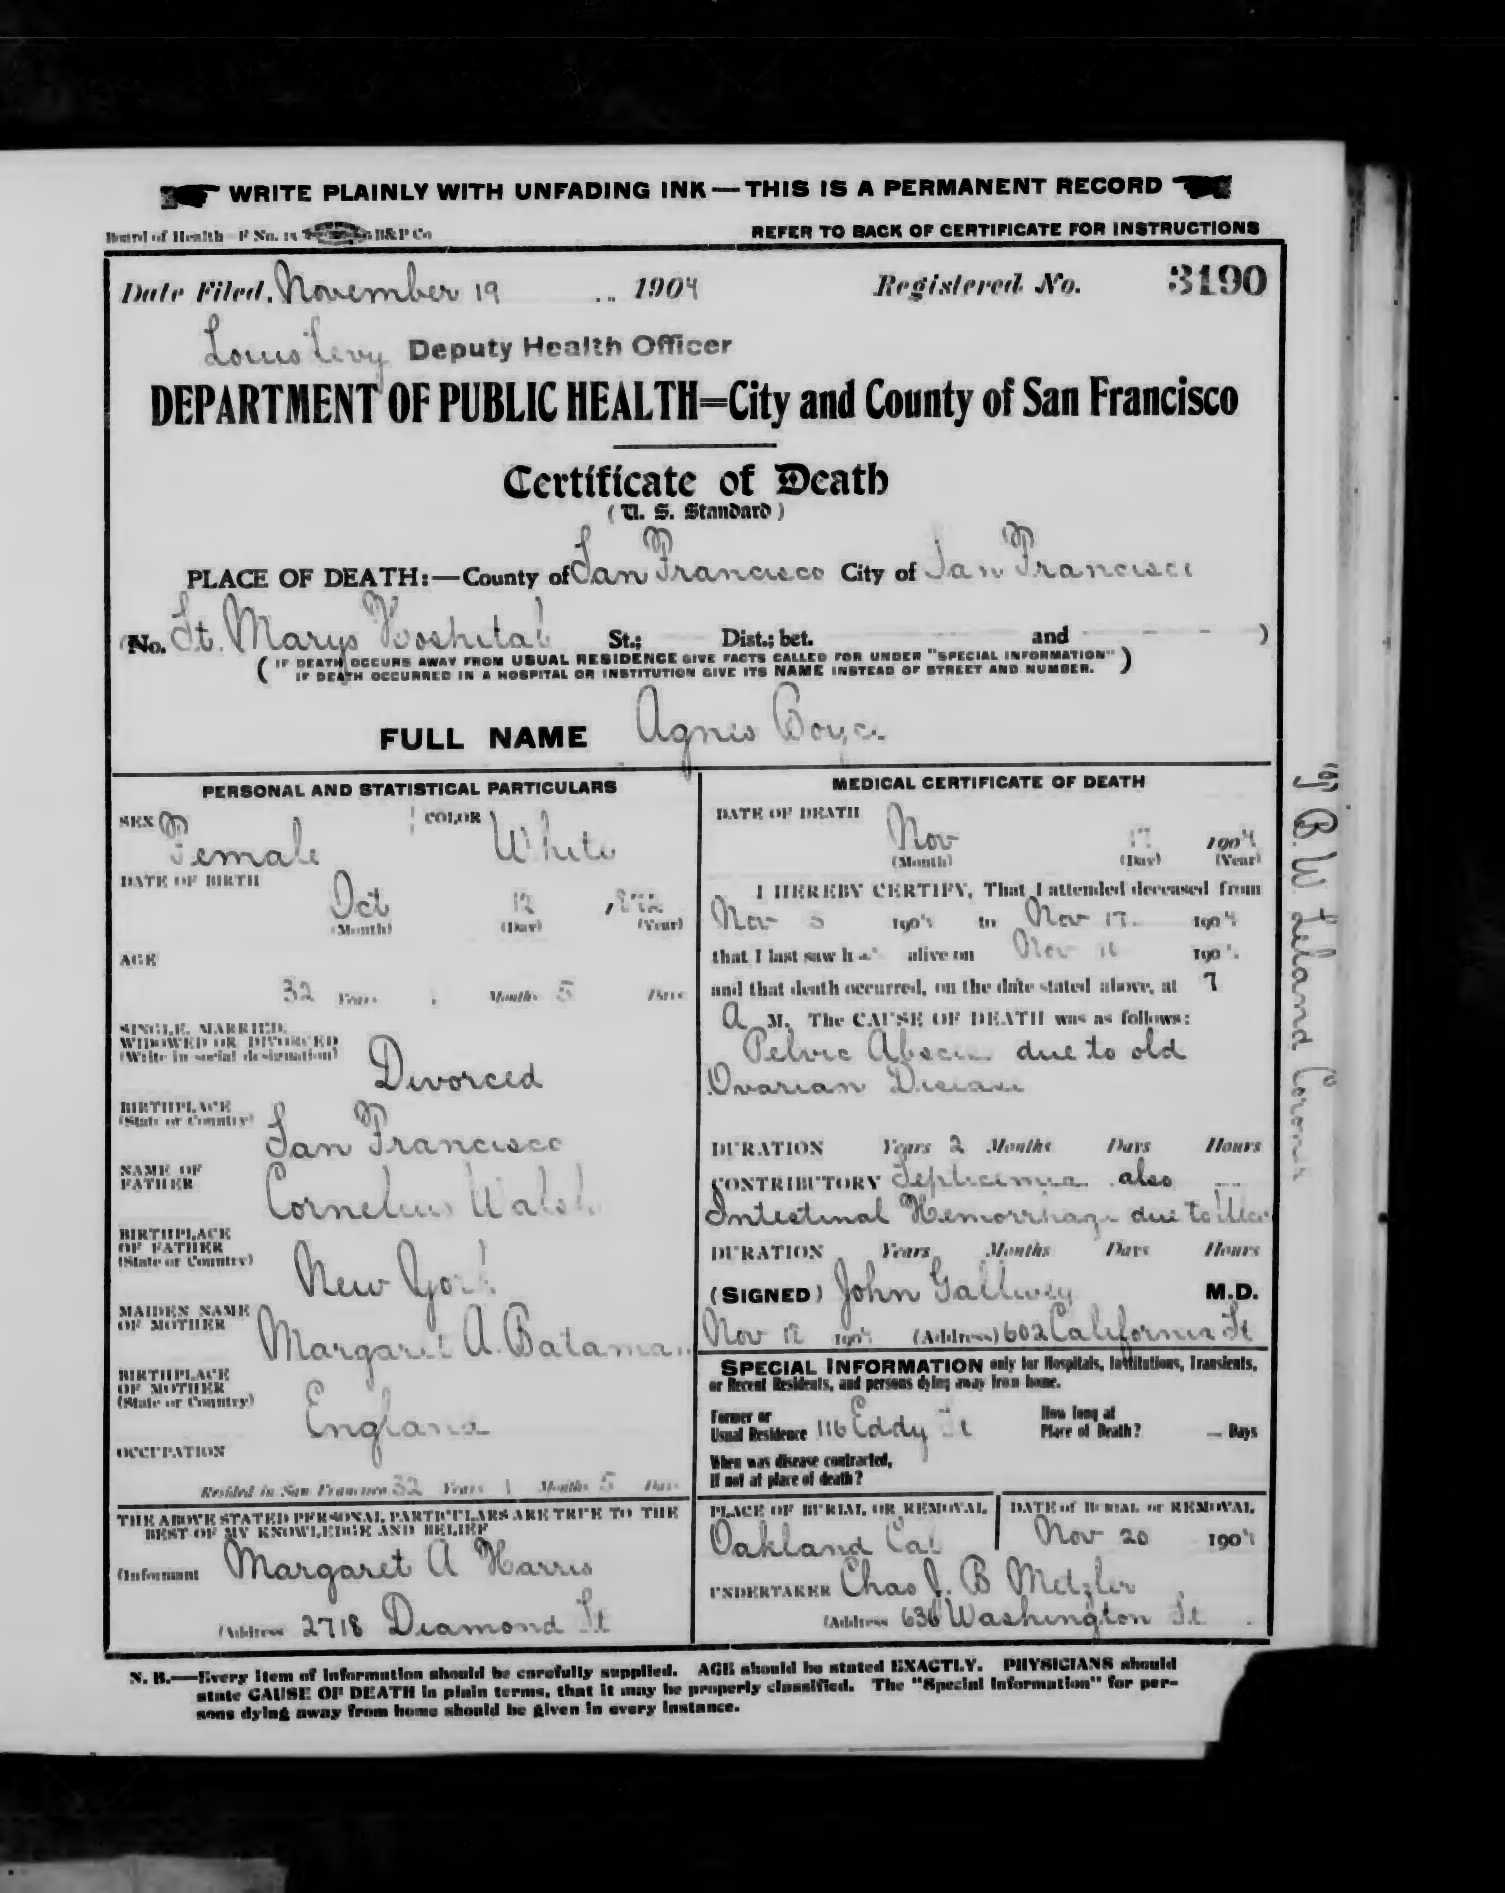 WRITE PLAINLY WITH UNFADING INK — THIS IS A PERMANENT RECORD
Board of Health F No. 15 B&P Co
REFER TO BACK OF CERTIFICATE FOR INSTRUCTIONS
Date Filed, November 19 1904 Registered No. 3190
Louis Levy Deputy Health Officer
DEPARTMENT OF PUBLIC HEALTH=City and County of San Francisco
Certificate of Death
(U. S. Standard)
PLACE OF DEATH:—County of San Francisco City of San Francisco
(No. St. Marys Hospital St.; Dist.; bet. and )
(IF DEATH OCCURS AWAY FROM USUAL RESIDENCE GIVE FACTS CALLED FOR UNDER "SPECIAL INFORMATION"
IF DEATH OCCURRED IN A HOSPITAL OR INSTITUTION GIVE ITS NAME INSTEAD OF STREET AND NUMBER.)
FULL NAME Agnes Boyce
PERSONAL AND STATISTICAL PARTICULARS
SEX Female COLOR White
DATE OF BIRTH
Oct 12 1872
(Month) (Day) (Year)
AGE
32 Years 1 Months 5 Days
SINGLE, MARRIED,
WIDOWED OR DIVORCED
(Write in social designation)
Divorced
BIRTHPLACE
(State or Country)
San Francisco
NAME OF
FATHER
Cornelius Walsh
BIRTHPLACE
OF FATHER
(State or Country)
New York
MAIDEN NAME
OF MOTHER
Margaret A. Bataman
BIRTHPLACE
OF MOTHER
(State or Country)
England
OCCUPATION
Resided in San Francisco 32 Years 1 Months 5 Days
THE ABOVE STATED PERSONAL PARTICULARS ARE TRUE TO THE
BEST OF MY KNOWLEDGE AND BELIEF
(Informant Margaret A Harris
(Address 2718 Diamond St
MEDICAL CERTIFICATE OF DEATH
DATE OF DEATH
Nov 17 1904
(Month) (Day) (Year)
I HEREBY CERTIFY, That I attended deceased from
Nov 5 1904 to Nov 17. 1904
that I last saw her alive on Nov 16 1904
and that death occurred, on the date stated above, at 7
A M. The CAUSE OF DEATH was as follows:
Pelvic Abscess due to old
Ovarian Disease
DURATION Years 2 Months Days Hours
CONTRIBUTORY Septicemia also
Intestinal Hemorrhage due to Ulcer
DURATION Years Months Days Hours
(SIGNED) John Gallwey M.D.
Nov 1904 (Address) 602 California St
SPECIAL INFORMATION only for Hospitals, Institutions, Transients,
or Recent Residents, and persons dying away from home.
Former or
Usual Residence 116 Eddy St
How long at
Place of Death? — Days
When was disease contracted,
If not at place of death?
PLACE OF BURIAL OR REMOVAL
Oakland Cal
DATE of BURIAL or REMOVAL
Nov 20 1904
UNDERTAKER Chas J. B Metzler
(Address 636 Washington St
N. B.—Every item of information should be carefully supplied. AGE should be stated EXACTLY. PHYSICIANS should
state CAUSE OF DEATH in plain terms, that it may be properly classified. The "Special Information" for per-
sons dying away from home should be given in every instance.
B. W. Leland Coroner